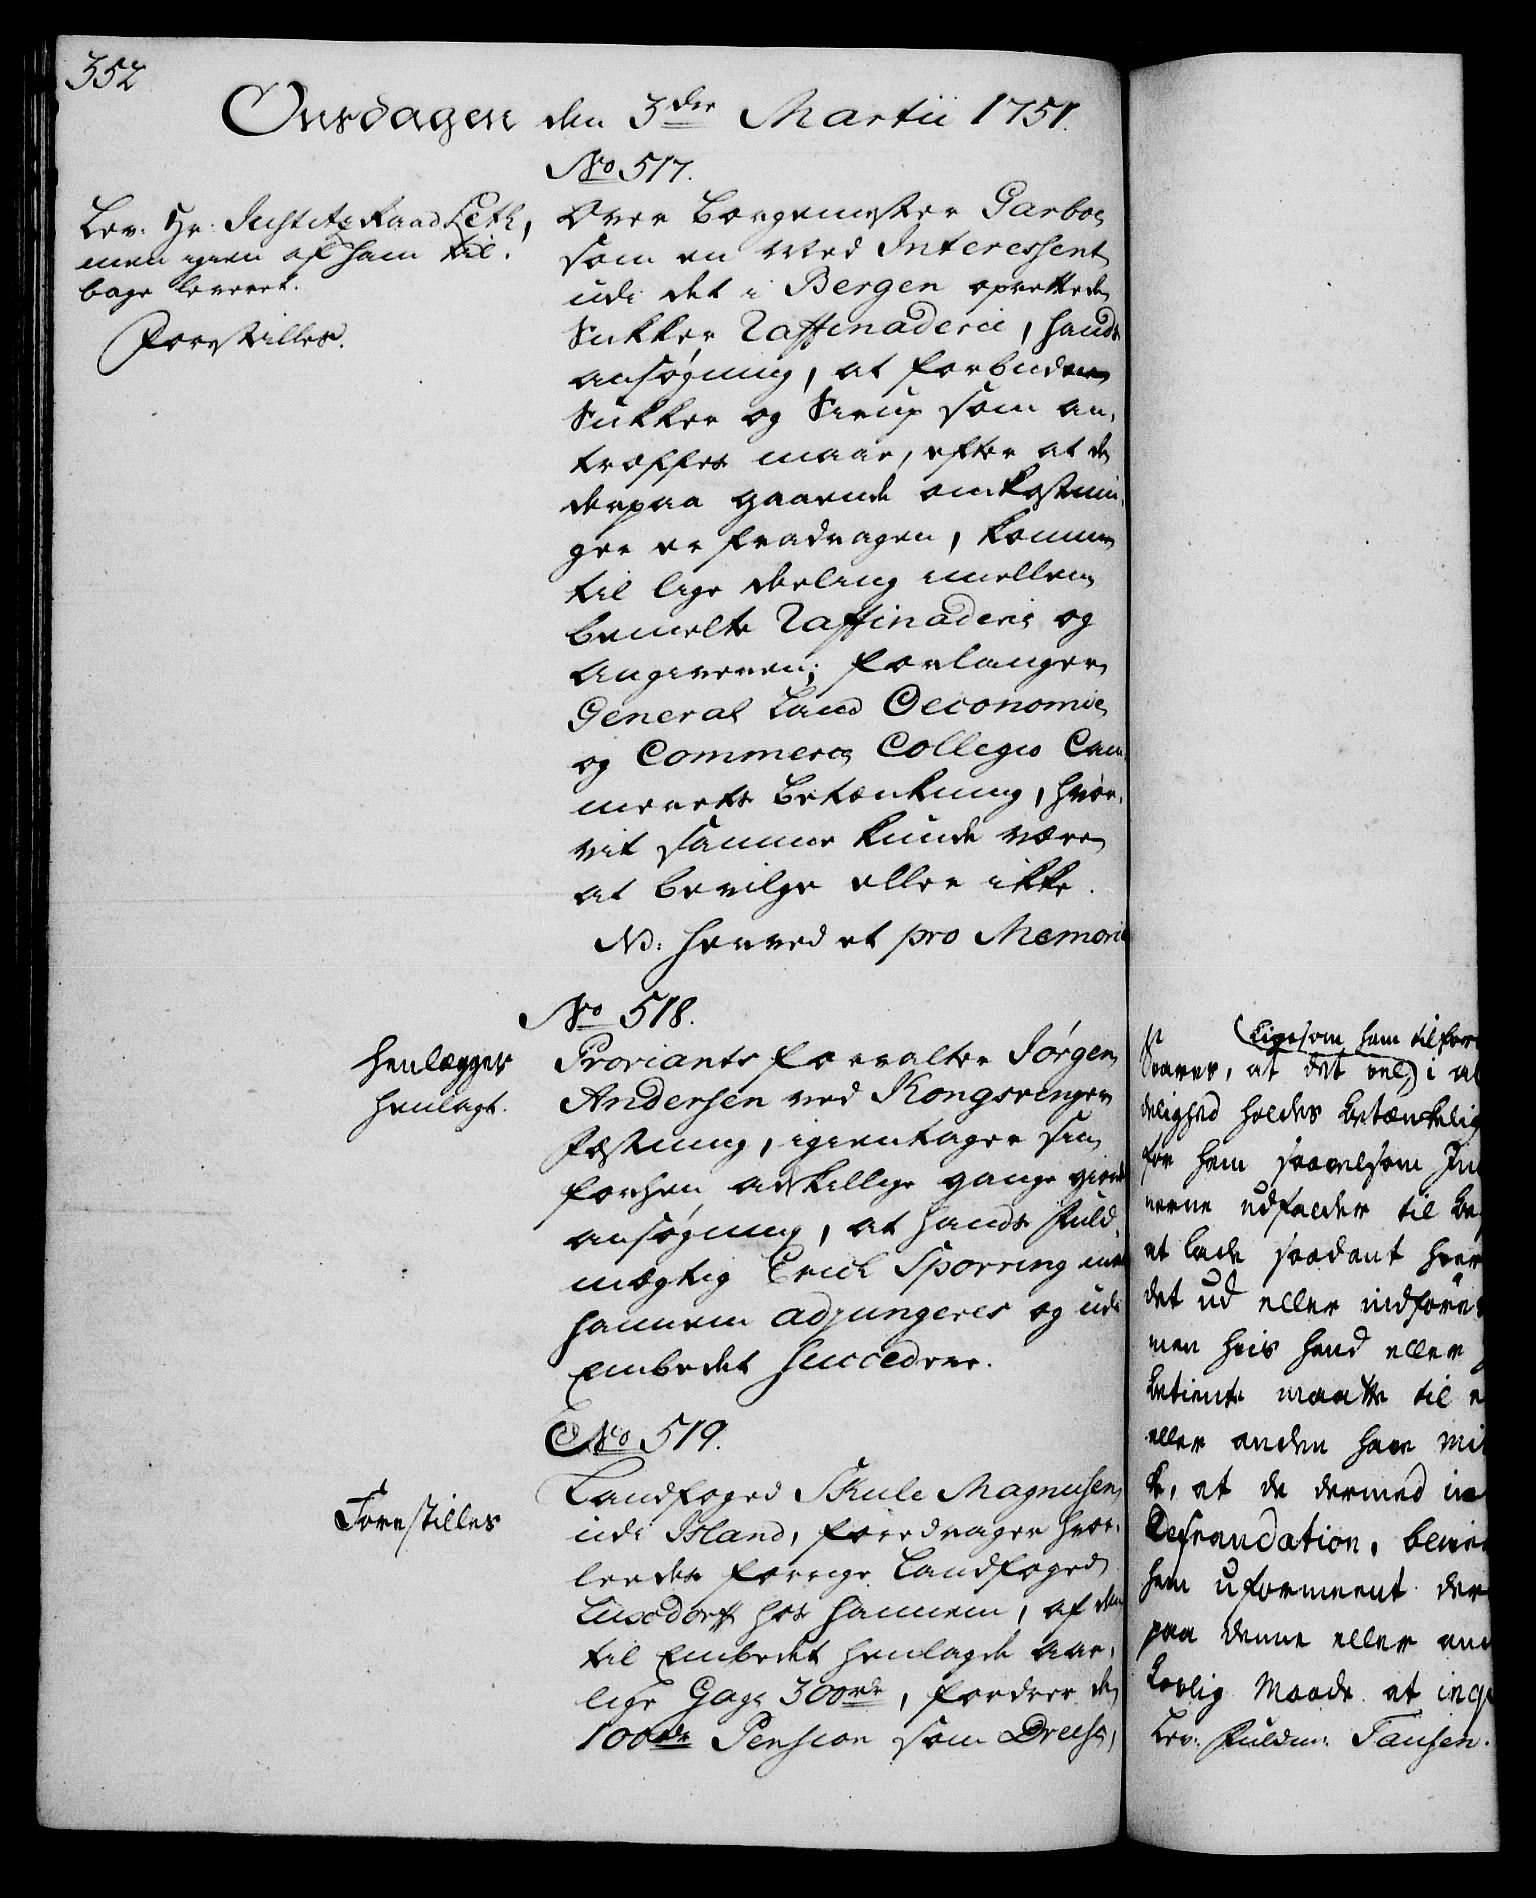 352
Onsdagen den 3der Martii 1751.
No 517.
Lev: Hr: Justitz Raad Leth,
men igien af ham til-
bage leveret.
Forestilles.
Over Borgemester Garboe
som en Med Interessent
udi det i Bergen oprettede
Sukker Raffinaderie, hands
ansøgning, at forbudene
Sukker og Sirup som an-
træffes maae, efter at de
derpaa gaaende omkostnin-
ger er fradragen, komme
til lige deeling imellem
bemelte Raffinaderie og
Angiveren; forlanger
General Land Oeconomie
og Commerce Collegio Cam-
merets Betænkning, hvor-
vit samme kunde være
at bevilge eller ikke.
NB: herved et pro Memoria
No 518.
Henlegges
henlagt.
Proviants forvalter Jørgen
Andersen ved Kongsvinger
Fæstning, igientager sin
forhen adskillige gange giorde
ansøgning, at hands Fuld-
mægtig Erich Sporring maa
hannem adjungeres og udi
Embedet Succedere.
No 519.
Forestilles
Landfoged Skule Magnusen
udi Island, foredrager hvor-
leedes forrige Landfoged
Luxdorff hos hannem, af den
til Embedet henlagde aar-
lige Gage 300 rdr, fordrer de
100 rdr Pension som Dreese,
(Ligesom ham tilfor
Svares, at det vel) i al
delighed holdes betænkelig
for ham saavelsom In
nerne udfalder til be
at lade saadant hver
det ud eller indføre
men hvis hand eller
betiente maatte til e
eller anden have mi
ke, at de dermed in
Defraudation, bliver
ham uformeent der
paa denne eller an
lovlig Maade at
Lev: Fuldm: Fansen.